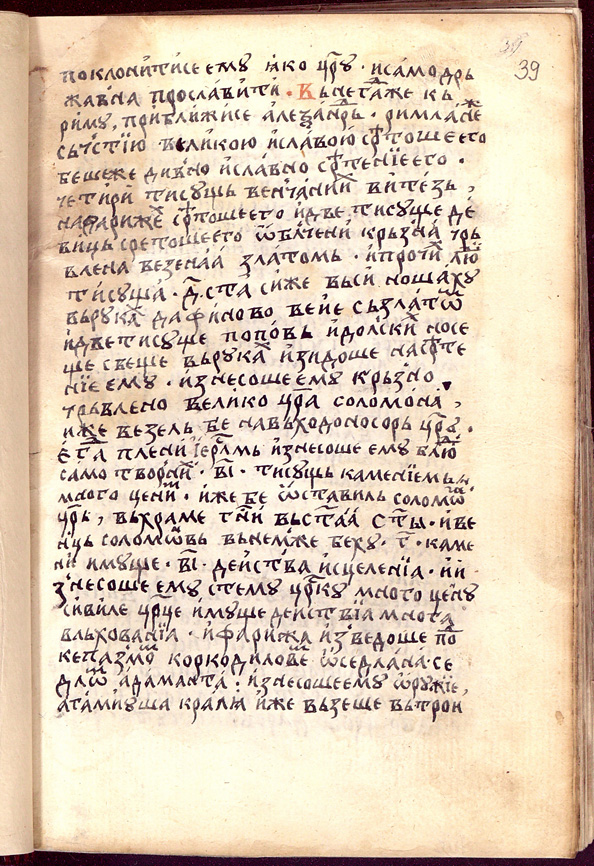 39
поклонити се ему ꙗко цр҃у · и самодрь
жавна прославити · Вьнегда же кь
риму, приближи се алеѯандрь · римлꙗне
сь ч҃стїю великою и славою срѣтоше его
беше же дивно и славно срѣтенїе его ·
четири тисушь венчаний витезь ,
на фарижех срѣтоше его и две тисуще де
виць сретоше его ѡблчени крьзна чрь
влена везенаа златомь · и прочи люді
тисуща · д҃ ста сиже вьси ношаху
вь рукахь дафиново вейе сь златѡм
и две тисуще поповь идолских носе
ще свеще вь рукахь изидоше на срѣте
нїе ему · изнесоше ему крьзно
чрьвлено велико цр҃а соломона ,
иже везель бе навьходоносорь цр҃ь ·
егда плени іерс҃лмь изнесоше ему блюд
само творних · в҃і · тисущь каменїемь
много цених · иже бе ѡставиль соломѡн
цр҃ь , вь храме г҃ни вь ст҃аа ст҃ы · и ве
нць соломѡвь вь немже беху · г҃ · каме
ни имуще · в҃і · действа исцеленїа · и и
знесоше ему стему цр҃ску многоцену
сивиле цр҃це имуще действїа многа
вльхованїа · и фарижа изведоше под
кепазмом коркодиловем ѡседлана · се
длѡм адаманта : изнесоше ему ѡружїе,
атамиуша кралꙗ иже вьзеше вь трои